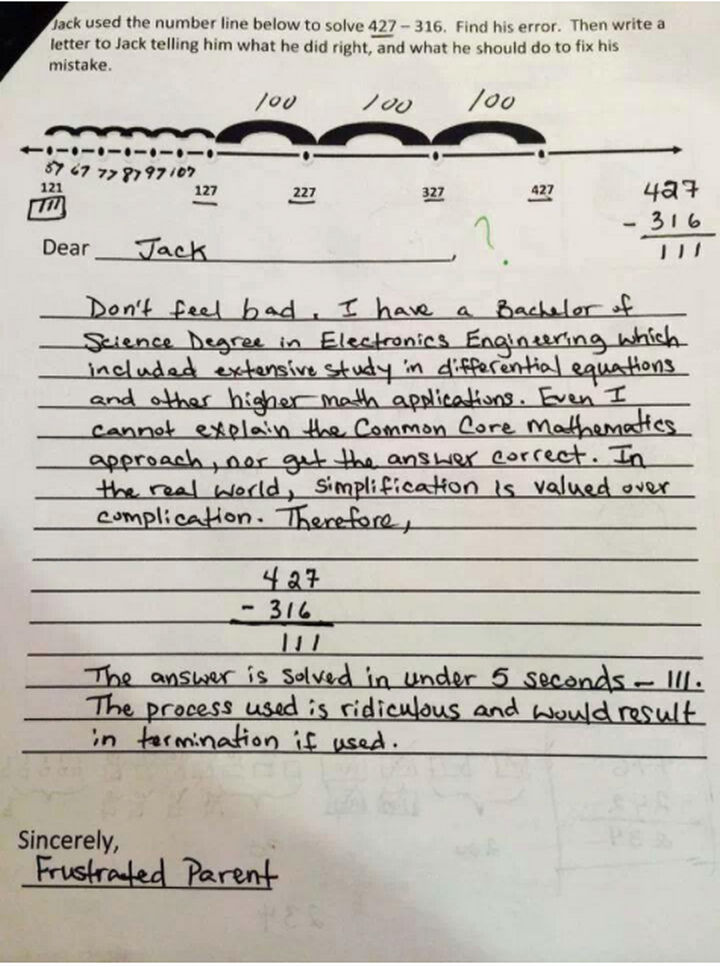 Jack used the number line below to solve 427 – 316. Find his error. Then write a
letter to Jack telling him what he did right, and what he should do to fix his
mistake.
100 100 100
57 67 77 87 97 107
121 127 227 327 427
111
427
- 316
111
?
Dear Jack,
Don't feel bad. I have a Bachelor of
Science Degree in Electronics Engineering which
included extensive study in differential equations
and other higher math applications. Even I
cannot explain the Common Core mathematics
approach, nor get the answer correct. In
the real world, simplification is valued over
complication. Therefore,
427
- 316
111
The answer is solved in under 5 seconds – 111.
The process used is ridiculous and would result
in termination if used.
Sincerely,
Frustrated Parent